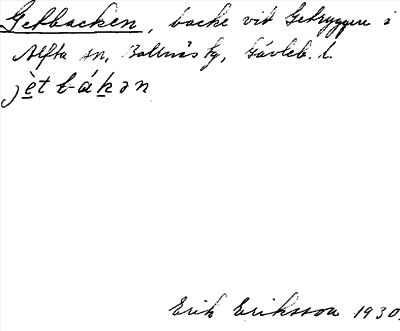 Getbacken, backe vid Getryggen i
Alfta sn, Bollnäs tg, Gävleb. l.
jètbákən
Erik Eriksson 1930.